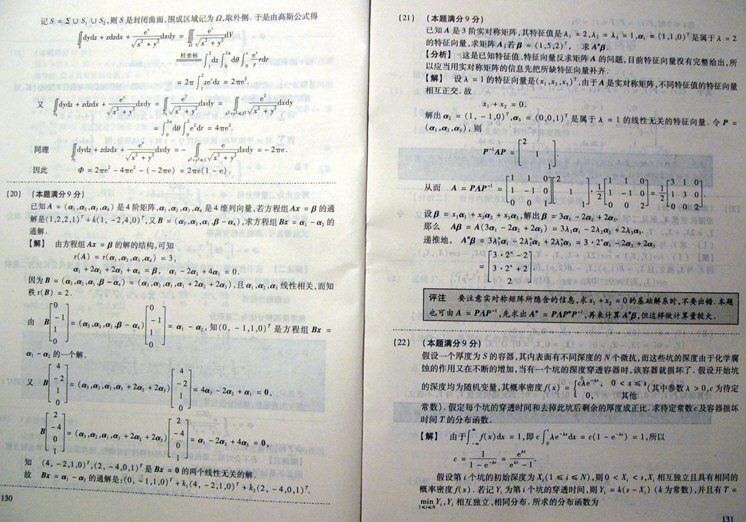 记 S = Σ∪S₁∪S₂,则 S 是封闭曲面,围成区域记为 Ω,取外侧. 于是由高斯公式得
∯dydz + zdzdx + e^z/√(x²+y²) dxdy = ∭ e^z/√(x²+y²) dV
柱坐标 ∫₁²dz∫₀^{2π}dθ∫₀^z e^z/r rdr
= 2π∫₁² ze^z dz = 2πe².
= ∫₀^{2π}dθ∫₀²e²dr = 4πe².
因此 Φ = 2πe² - 4πe² - (-2πe) = 2πe(1 - e).
(20) (本题满分9分)
已知 A = (α₁,α₂,α₃,α₄) 是4阶矩阵,α₁,α₂,α₃,α₄ 是4维列向量,若方程组 Ax = β 的通
解是(1,2,2,1)ᵀ + k(1,-2,4,0)ᵀ,又 B = (α₃,α₂,α₁,β - α₄),求方程组 Bx = α₁ - α₂ 的
通解.
【解】 由方程组 Ax = β 的解的结构,可知
r(A) = r(α₁,α₂,α₃,α₄) = 3,
α₁ + 2α₂ + 2α₃ + α₄ = β, α₁ - 2α₂ + 4α₃ = 0.
因为 B = (α₃,α₂,α₁,β - α₄) = (α₃,α₂,α₁,α₁ + 2α₂ + 2α₃),且 α₁,α₂,α₃ 线性相关,而知
秩 r(B) = 2.
由 B[0 -1 1 0] = (α₃,α₂,α₁,β - α₄)[0 -1 1 0] = α₁ - α₂,知(0,-1,1,0)ᵀ 是方程组 Bx =
α₁ - α₂ 的一个解.
又 B[4 -2 1 0] = (α₃,α₂,α₁,α₁ + 2α₂ + 2α₃)[4 -2 1 0] = 4α₃ - 2α₂ + α₁ = 0,
B[2 -4 0 1] = (α₃,α₂,α₁,α₁ + 2α₂ + 2α₃)
知 (4,-2,1,0)ᵀ,(2,-4,0,1)ᵀ 是 Bx = 0 的两个线性无关的解.
故 Bx = α₁ - α₂ 的通解是:(0,-1,1,0)ᵀ + k₁(4,-2,1,0)ᵀ + k₂(2,-4,0,1)ᵀ.
130
(21) (本题满分9分)
已知 A 是3阶实对称矩阵,其特征值是 λ₁ = 2,λ₂ = λ₃ = 1,α₁ = (1,1,0)ᵀ 是属于 λ = 2
的特征向量,求矩阵 A;若 β = (1,5,2)ᵀ, 求 Aⁿβ.
【分析】 这是已知特征值、特征向量反求矩阵 A 的问题,目前特征向量没有完整给出,所
以应当用实对称矩阵的信息先把所缺特征向量补齐.
【解】 设 λ = 1 的特征向量是(x₁,x₂,x₃)ᵀ,由于 A 是实对称矩阵,不同特征值的特征向量
相互正交. 故
x₁ + x₂ = 0.
解出 α₂ = (1,-1,0)ᵀ,α₃ = (0,0,1)ᵀ 是属于 λ = 1 的线性无关的特征向量. 令 P =
(α₁,α₂,α₃),则
P⁻¹AP = [2 1 1]
从而 A = PAP⁻¹ = [1 1 0; 1 -1 0; 0 0 1][2 1 1]·1/2[1 1 0; 1 -1 0; 0 0 2] = 1/2[3 1 0; 1 3 0; 0 0 2]
设 β = x₁α₁ + x₂α₂ + x₃α₃,解出 β = 3α₁ - 2α₂ + 2α₃.
那么 Aβ = A(3α₁ - 2α₂ + 2α₃) = 3λ₁α₁ - 2λ₂α₂ + 2λ₃α₃.
递推地, Aⁿβ = 3λ₁ⁿα₁ - 2λ₂ⁿα₂ + 2λ₃ⁿα₃ = 3·2ⁿα₁ - 2α₂ + 2α₃
= [3·2ⁿ - 2; 3·2ⁿ + 2; 2]
评注 要注意实对称矩阵所隐含的信息,求 x₁ + x₂ = 0 的基础解系时,不要出错. 本题
也可由 A = PAP⁻¹,先求出 Aⁿ = PAⁿP⁻¹,再来计算 Aⁿβ,但这样做计算量较大.
(22) (本题满分9分)
假设一个厚度为 S 的容器,其内表面有不同深度的 N 个微坑,而这些坑的深度由于化学腐
蚀的作用又在不断的增加,当有一个坑的深度穿透容器时,该容器就损坏了. 假设开始坑
的深度均为随机变量,其概率密度 f(x) = {cλe^{-λx}, 0 < x ≤ s, 0, 其他 (其中参数 λ > 0,c 为待定
常数). 假定每个坑的穿透时间和去掉此坑后剩余的厚度成正比. 求待定常数 c 及容器损坏
时间 T 的分布函数.
【解】 由于∫f(x)dx = 1,即 c∫₀ˢλe^{-λx}dx = c(1 - e^{-λs}) = 1,所以
假设第 i 个坑的初始深度为 Xᵢ(1 ≤ i ≤ N),则 0 < Xᵢ < s,Xᵢ 相互独立且具有相同的
概率密度 f(x). 若记 Yᵢ 为第 i 个坑的穿透时间,则 Yᵢ = k(s - Xᵢ) (k 为常数),并且有 T =
min Yᵢ,Yᵢ 相互独立、相同分布. 所求的分布函数为
131